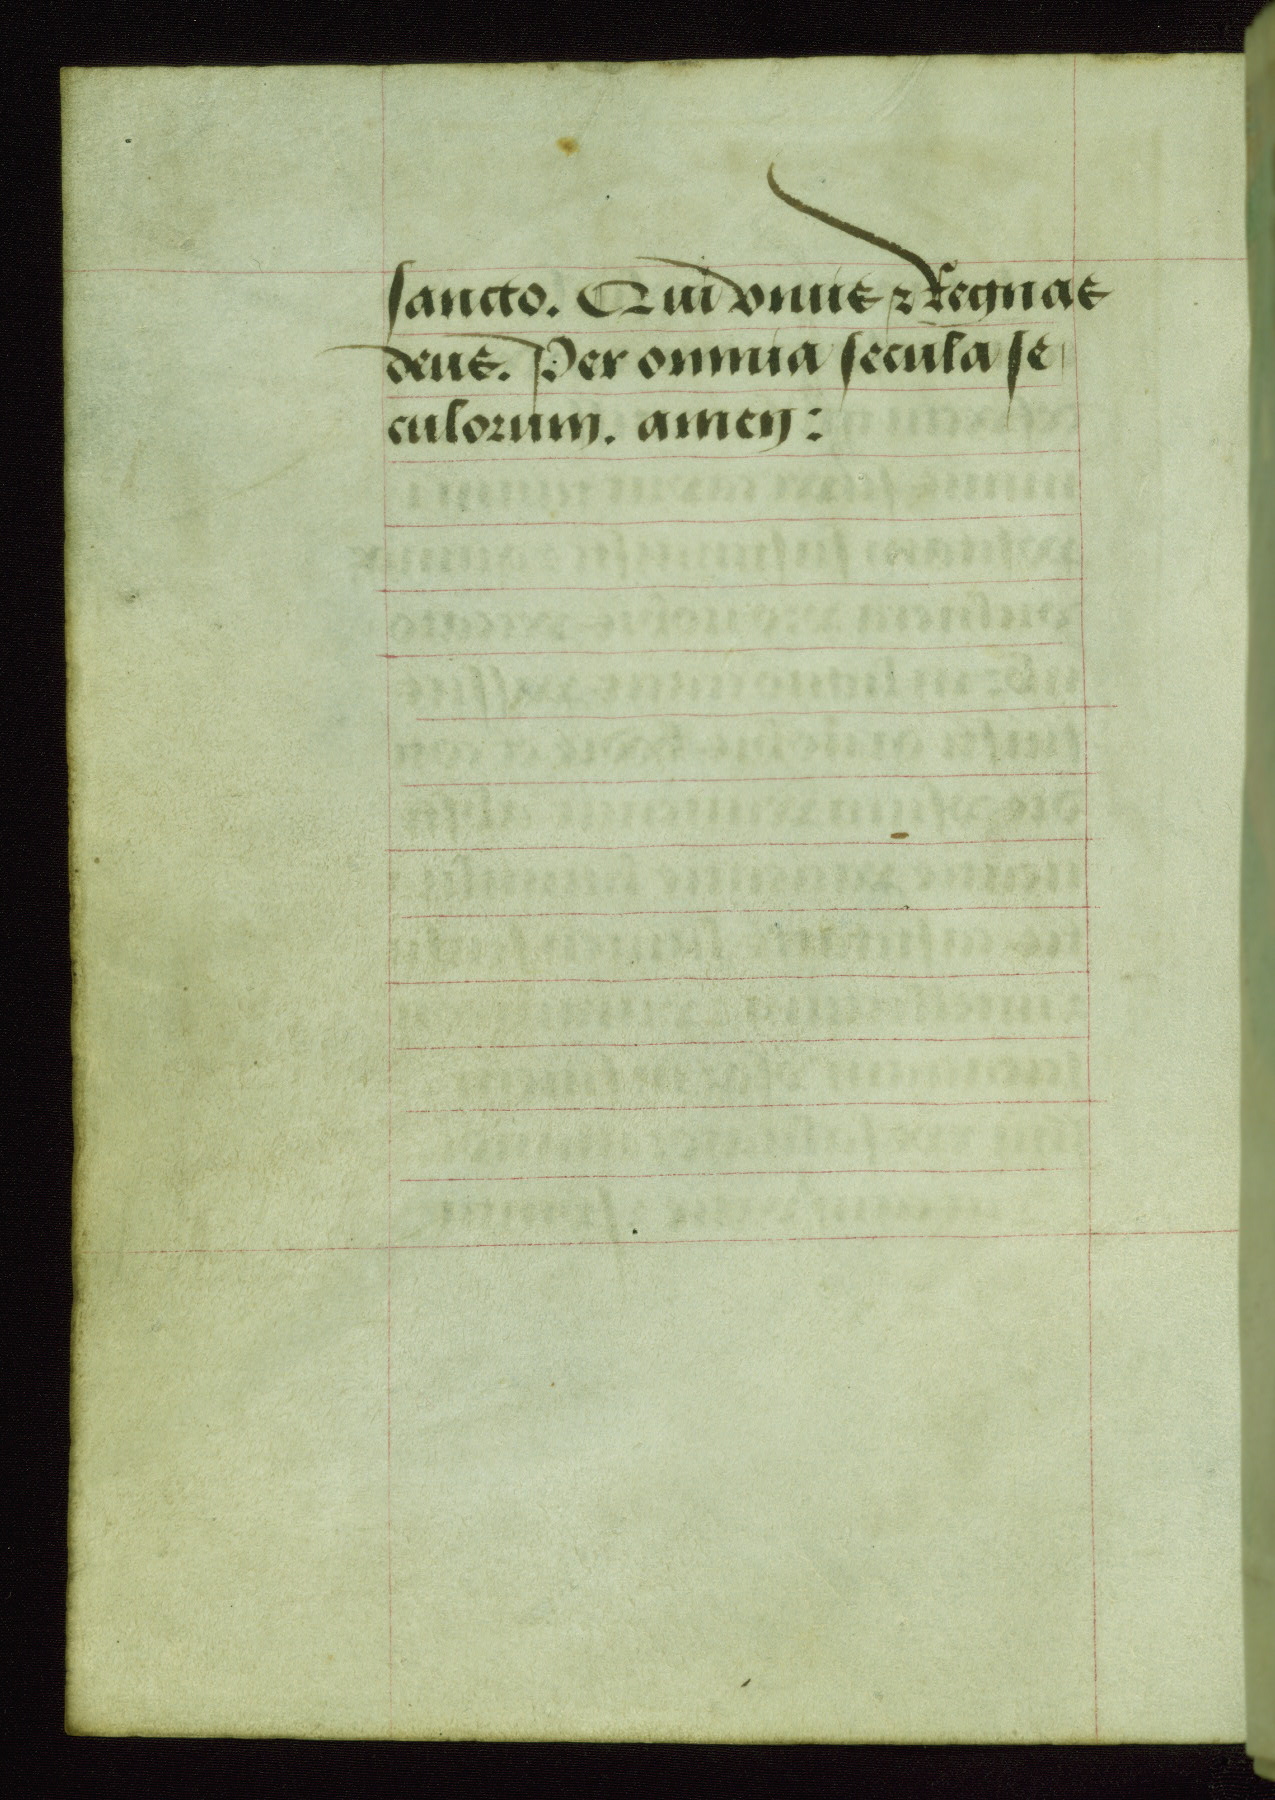 sancto. Qui viuis ⁊ Regnas
deus. Per omnia secula se
culorum. amen: